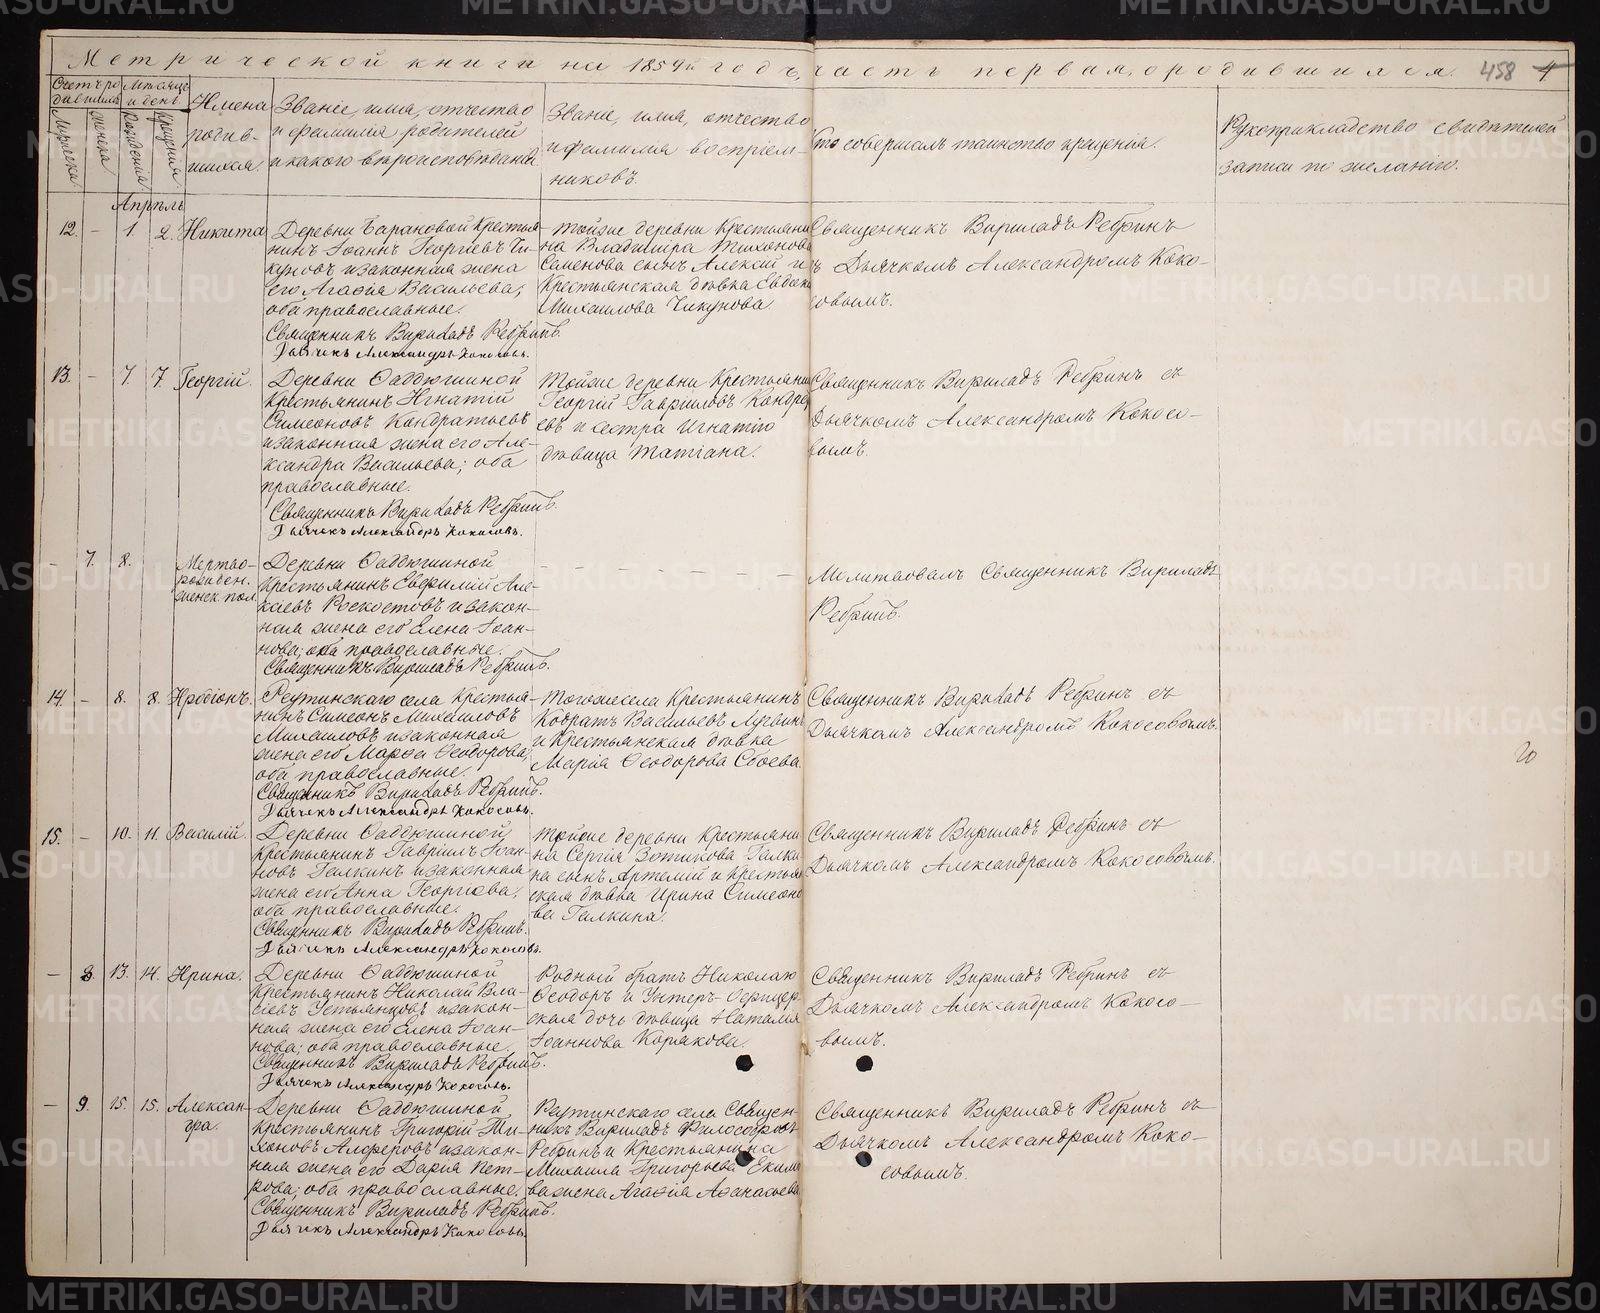 Метрической книги на 1859й годъ, часть первая, о родившихся. 458 4
Счетъ ро-
дившихся
Мѣсяцъ
и день
Мужеска
женска
Рожденія
Крещенія
Имена
родив-
шихся.
Званіе, имя, отчество
и фамилія родителей
и какого вѣроисповѣданія
Званіе, имя, отчество
и фамилія воспріем-
никовъ.
Кто совершалъ таинство крещенія.
Рукоприкладство свидѣтелей
записи по желанію.
Апрѣль
12. – 1. 2. Никита
Деревни Барановой Крестья-
нинъ Іоаннъ Георгіевъ Чи-
куновъ и законная жена
его Агаѳія Васильева,
оба православные.
Священникъ Вириладъ Ребринъ.
Дьячекъ Александръ Кокосовъ.
Тойже деревни Крестьяни
на Владиміра Тихонова
Семенова сынъ Алексій и
Крестьянская дѣвка Евдокі
Михаилова Чикунова
Священникъ Вириладъ Ребринъ
съ Дьячкомъ Александромъ Коко-
совымъ.
13. – 7. 7. Георгій.
Деревни Ѳаддюшиной
Крестьянинъ Игнатій
Симеоновъ Кондратьевъ
и законная жена его Але-
ксандра Васильева; оба
православные.
Священникъ Вириладъ Ребринъ.
Дьячекъ Александръ Кокосовъ.
Тойже деревни Крестьяни
Георгій Гавріиловъ Кондра
евъ и сестра Игнатію
дѣвица Татіана.
Священникъ Вириладъ Ребринъ съ
Дьячкомъ Александромъ Кокосо-
вымъ.
– 7. 8.
Мертво-
рожден.
женск. пол.
Деревни Ѳаддюшиной
Крестьянинъ Евфимій Але-
ксіевъ Роскостовъ и закон-
ная жена его Елена Іоан-
нова; оба православные.
Священникъ Вириладъ Ребринъ.
Молитвовалъ Священникъ Вириладъ
Ребринъ.
14. – 8. 8. Иродіонъ.
Реутинскаго села Крестья-
нинъ Симеонъ Михаиловъ
Михаиловъ и законная
жена его Марѳа Ѳеодорова,
оба православные.
Священникъ Вириладъ Ребринъ.
Дьячекъ Александръ Кокосовъ.
Тогоже села Крестьянинъ
Кодратъ Васильевъ Лучинин
и Крестьянская дѣвка
Марія Ѳеодорова Сбоева.
Священникъ Вириладъ Ребринъ съ
Дьячкомъ Александромъ Кокосовымъ.
20
15. – 10. 11. Василій.
Деревни Ѳаддюшиной
Крестьянинъ Гавріилъ Іоан-
новъ Галкинъ и законная
жена его Анна Георгіева,
оба православные.
Священникъ Вириладъ Ребринъ.
Дьячекъ Александръ Кокосовъ.
Тойже деревни Крестьяни
на Сергія Зотикова Галки
на сынъ Артемій и Крестьян
ская дѣвка Ирина Симеоно
ва Галкина.
Священникъ Вириладъ Ребринъ съ
Дьячкомъ Александромъ Кокосовымъ.
– 8 13. 14. Ирина.
Деревни Ѳаддюшиной
Крестьянинъ Николай Вла-
сіевъ Устьянцовъ и закон-
ная жена его Елена Іоан-
нова; оба православные.
Священникъ Вириладъ Ребринъ.
Дьячекъ Александръ Кокосовъ.
Родный братъ Николаю
Ѳеодоръ и Унтеръ-Офицер
ская дочь дѣвица Наталія
Іоаннова Корякова.
Священникъ Вириладъ Ребринъ съ
Дьячкомъ Александромъ Кокосо-
вымъ.
– 9. 15. 15. Алексан-
дра.
Деревни Ѳаддюшиной
Крестьянинъ Григорій Ти-
хоновъ Алферовъ и закон-
ная жена его Дарія Пет-
рова; оба православные.
Священникъ Вириладъ Ребринъ.
Дьячекъ Александръ Кокосовъ.
Реутинскаго села Священ-
никъ Вириладъ Философовъ
Ребринъ и Крестьянина
Михаила Григорьева Еким
ва жена Агаѳія Аѳанасьева.
Священникъ Вириладъ Ребринъ съ
Дьячкомъ Александромъ Коко-
совымъ.
METRIKI.GASO-URAL.RU